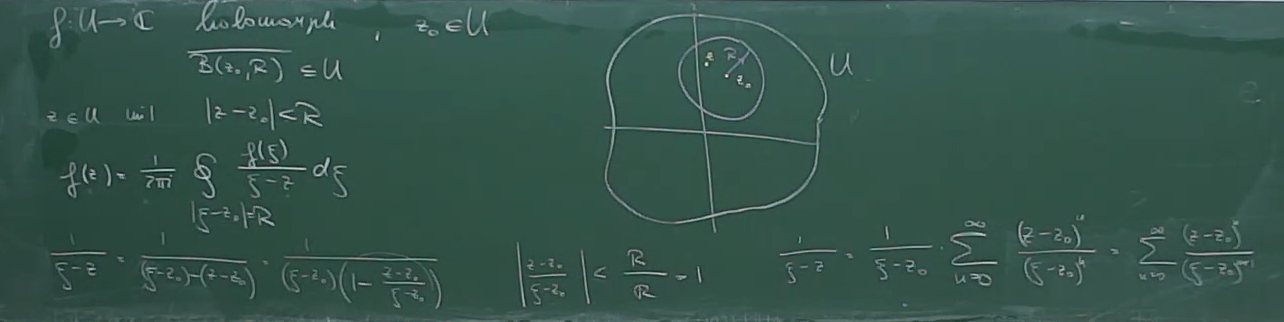 f: U → ℂ holomorph , z₀ ∈ U
\overline{B(z₀,R)} ⊆ U
z ∈ U mit |z-z₀| < R
f(z) = \frac{1}{2πi} ∮_{|ξ-z₀|=R} \frac{f(ξ)}{ξ-z} dξ
z R z₀ U
\frac{1}{ξ-z} = \frac{1}{(ξ-z₀)-(z-z₀)} = \frac{1}{(ξ-z₀)(1-\frac{z-z₀}{ξ-z₀})}
|\frac{z-z₀}{ξ-z₀}| < \frac{R}{R} = 1
\frac{1}{ξ-z} = \frac{1}{ξ-z₀} · \sum_{n=0}^{∞} \frac{(z-z₀)^n}{(ξ-z₀)^n} = \sum_{n=0}^{∞} \frac{(z-z₀)^n}{(ξ-z₀)^{n+1}}